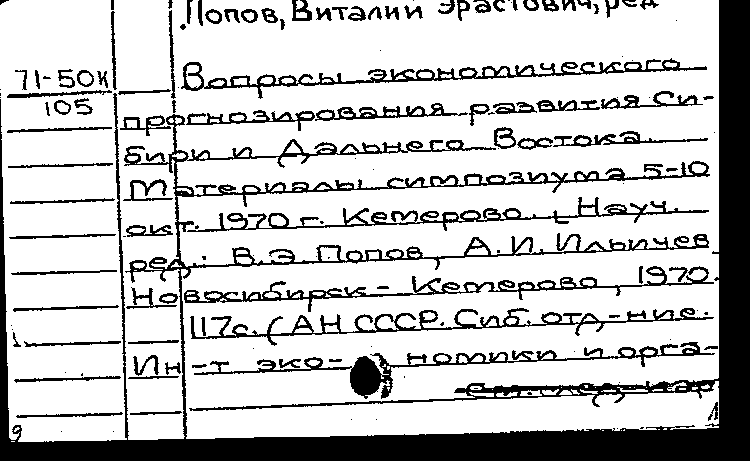 Попов, Виталий Эрастович, ред
71-50к Вопросы экономического
105 прогнозирования развития Си-
бири и Дальнего Востока.
Материалы симпозиума 5-10
окт. 1970 г. Кемерово. [Науч.
ред.: В.Э. Попов, А.И. Ильичев
Новосибирск - Кемерово, 1970.
117с. (АН СССР. Сиб. отд-ние.
Ин-т эко- номики и орга-
см. след. кар